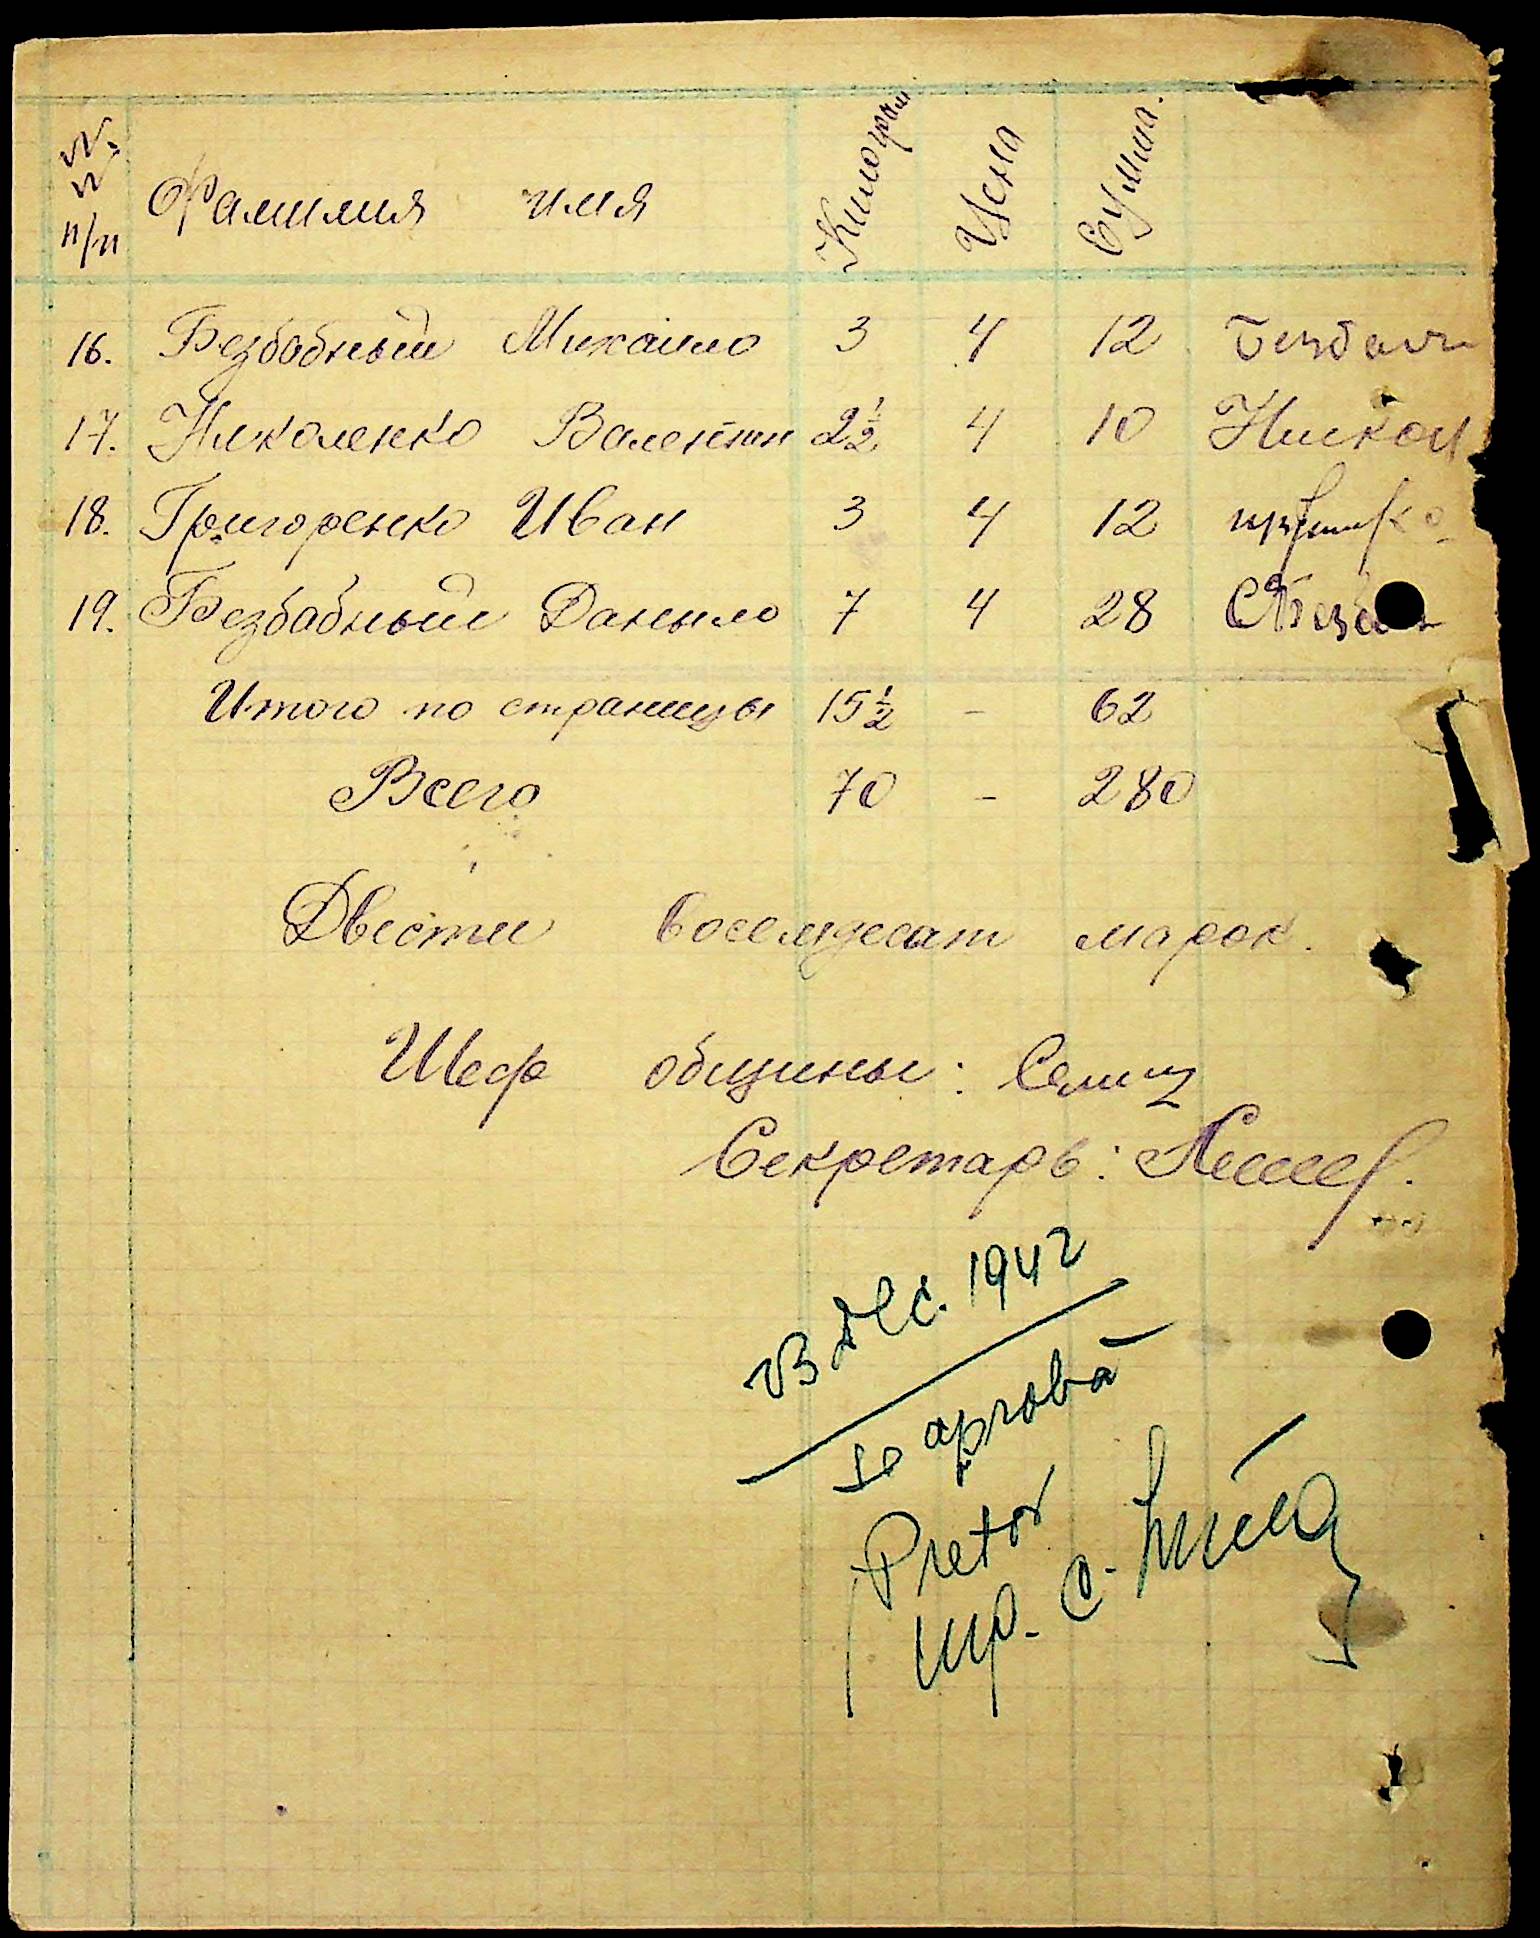 N. N п/п Фамилия имя Килограм Цена Сумма.
16. Безбабный Михайло 3 4 12
17. Николенко Валентин 2 1/2 4 10 Никол
18. Григоренко Иван 3 4 12
19. Безбабный Даныло 7 4 28
Итого по страницы 15 1/2 - 62
Всего 70 - 280
Двести восемдесат марок.
Шеф общины:
Секретарь:
23 Dec. 1942
se aprobă
Pretor